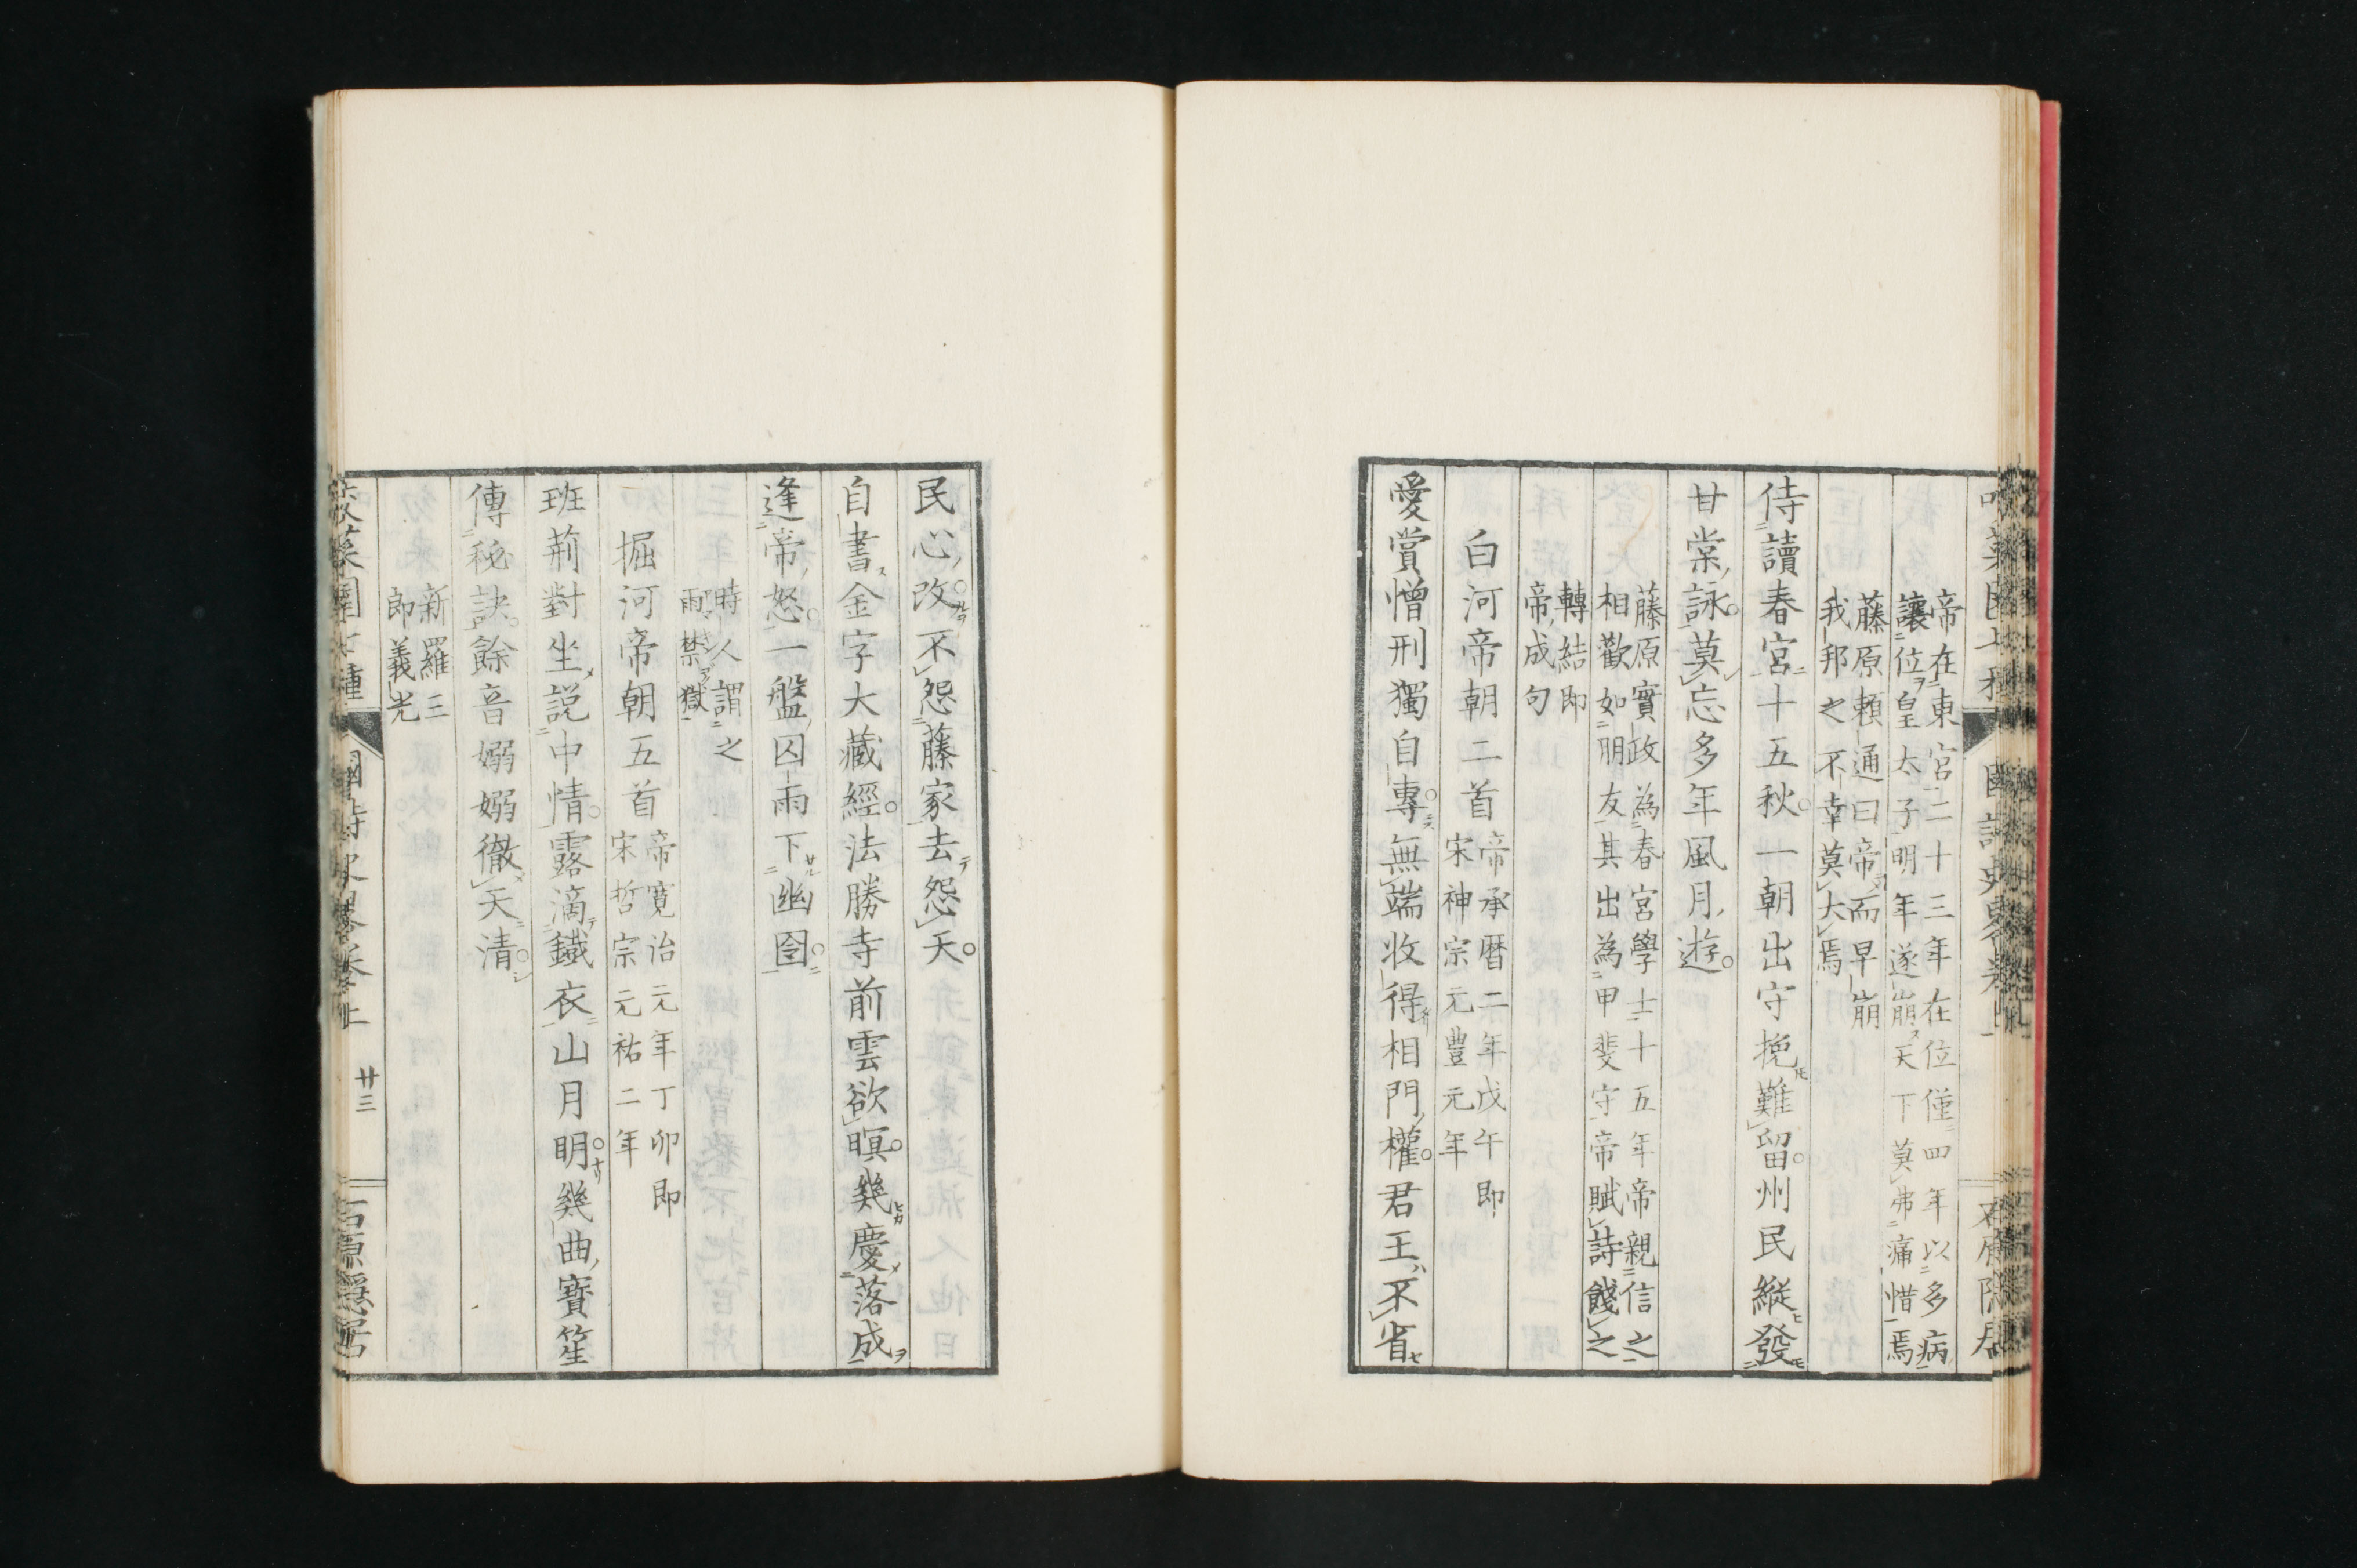 帝在東宮二十三年在位僅四年以多病
讓位皇太子明年遂崩天下莫弗痛惜焉
藤原賴通曰帝而早崩
我邦之不幸莫大焉
侍讀春宮十五秋一朝出守挽難留州民縱發
甘棠詠莫忘多年風月遊
藤原實政為春宮學士十五年帝親信之
相歡如朋友其出為甲斐守帝賦詩餞之
轉結即
帝成句
白河帝朝二首
帝承曆二年戊午即
宋神宗元豐元年
愛賞憎刑獨自專無端收得相門權君王不省
民心改不怨藤家去怨天
自書金字大藏經法勝寺前雲欲暝幾慶落成
逢帝怒一盤囚雨下幽囹
時人謂之
雨禁獄
堀河帝朝五首
帝寬治元年丁卯即
宋哲宗元祐二年
班荊對坐説中情露滴鐵衣山月明幾曲寶笙
傳秘訣餘音嫋嫋徹天清
新羅三
即義光
廿三
石原隱居